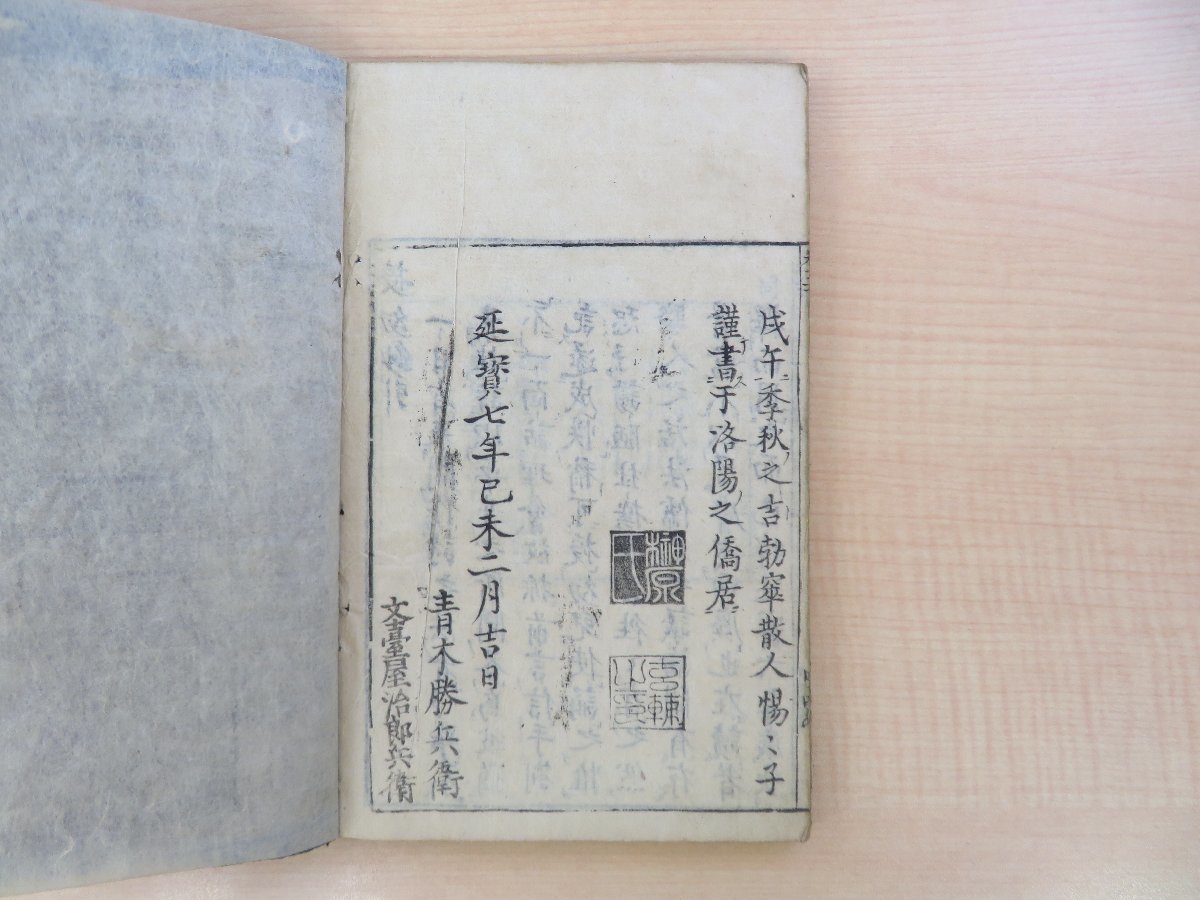 戊午季秋之吉勃窣散人惕〻子
謹書于洛陽之僑居
榊原
氏
延寶七年己未二月吉日
青木勝兵衛
文臺屋治郎兵衛